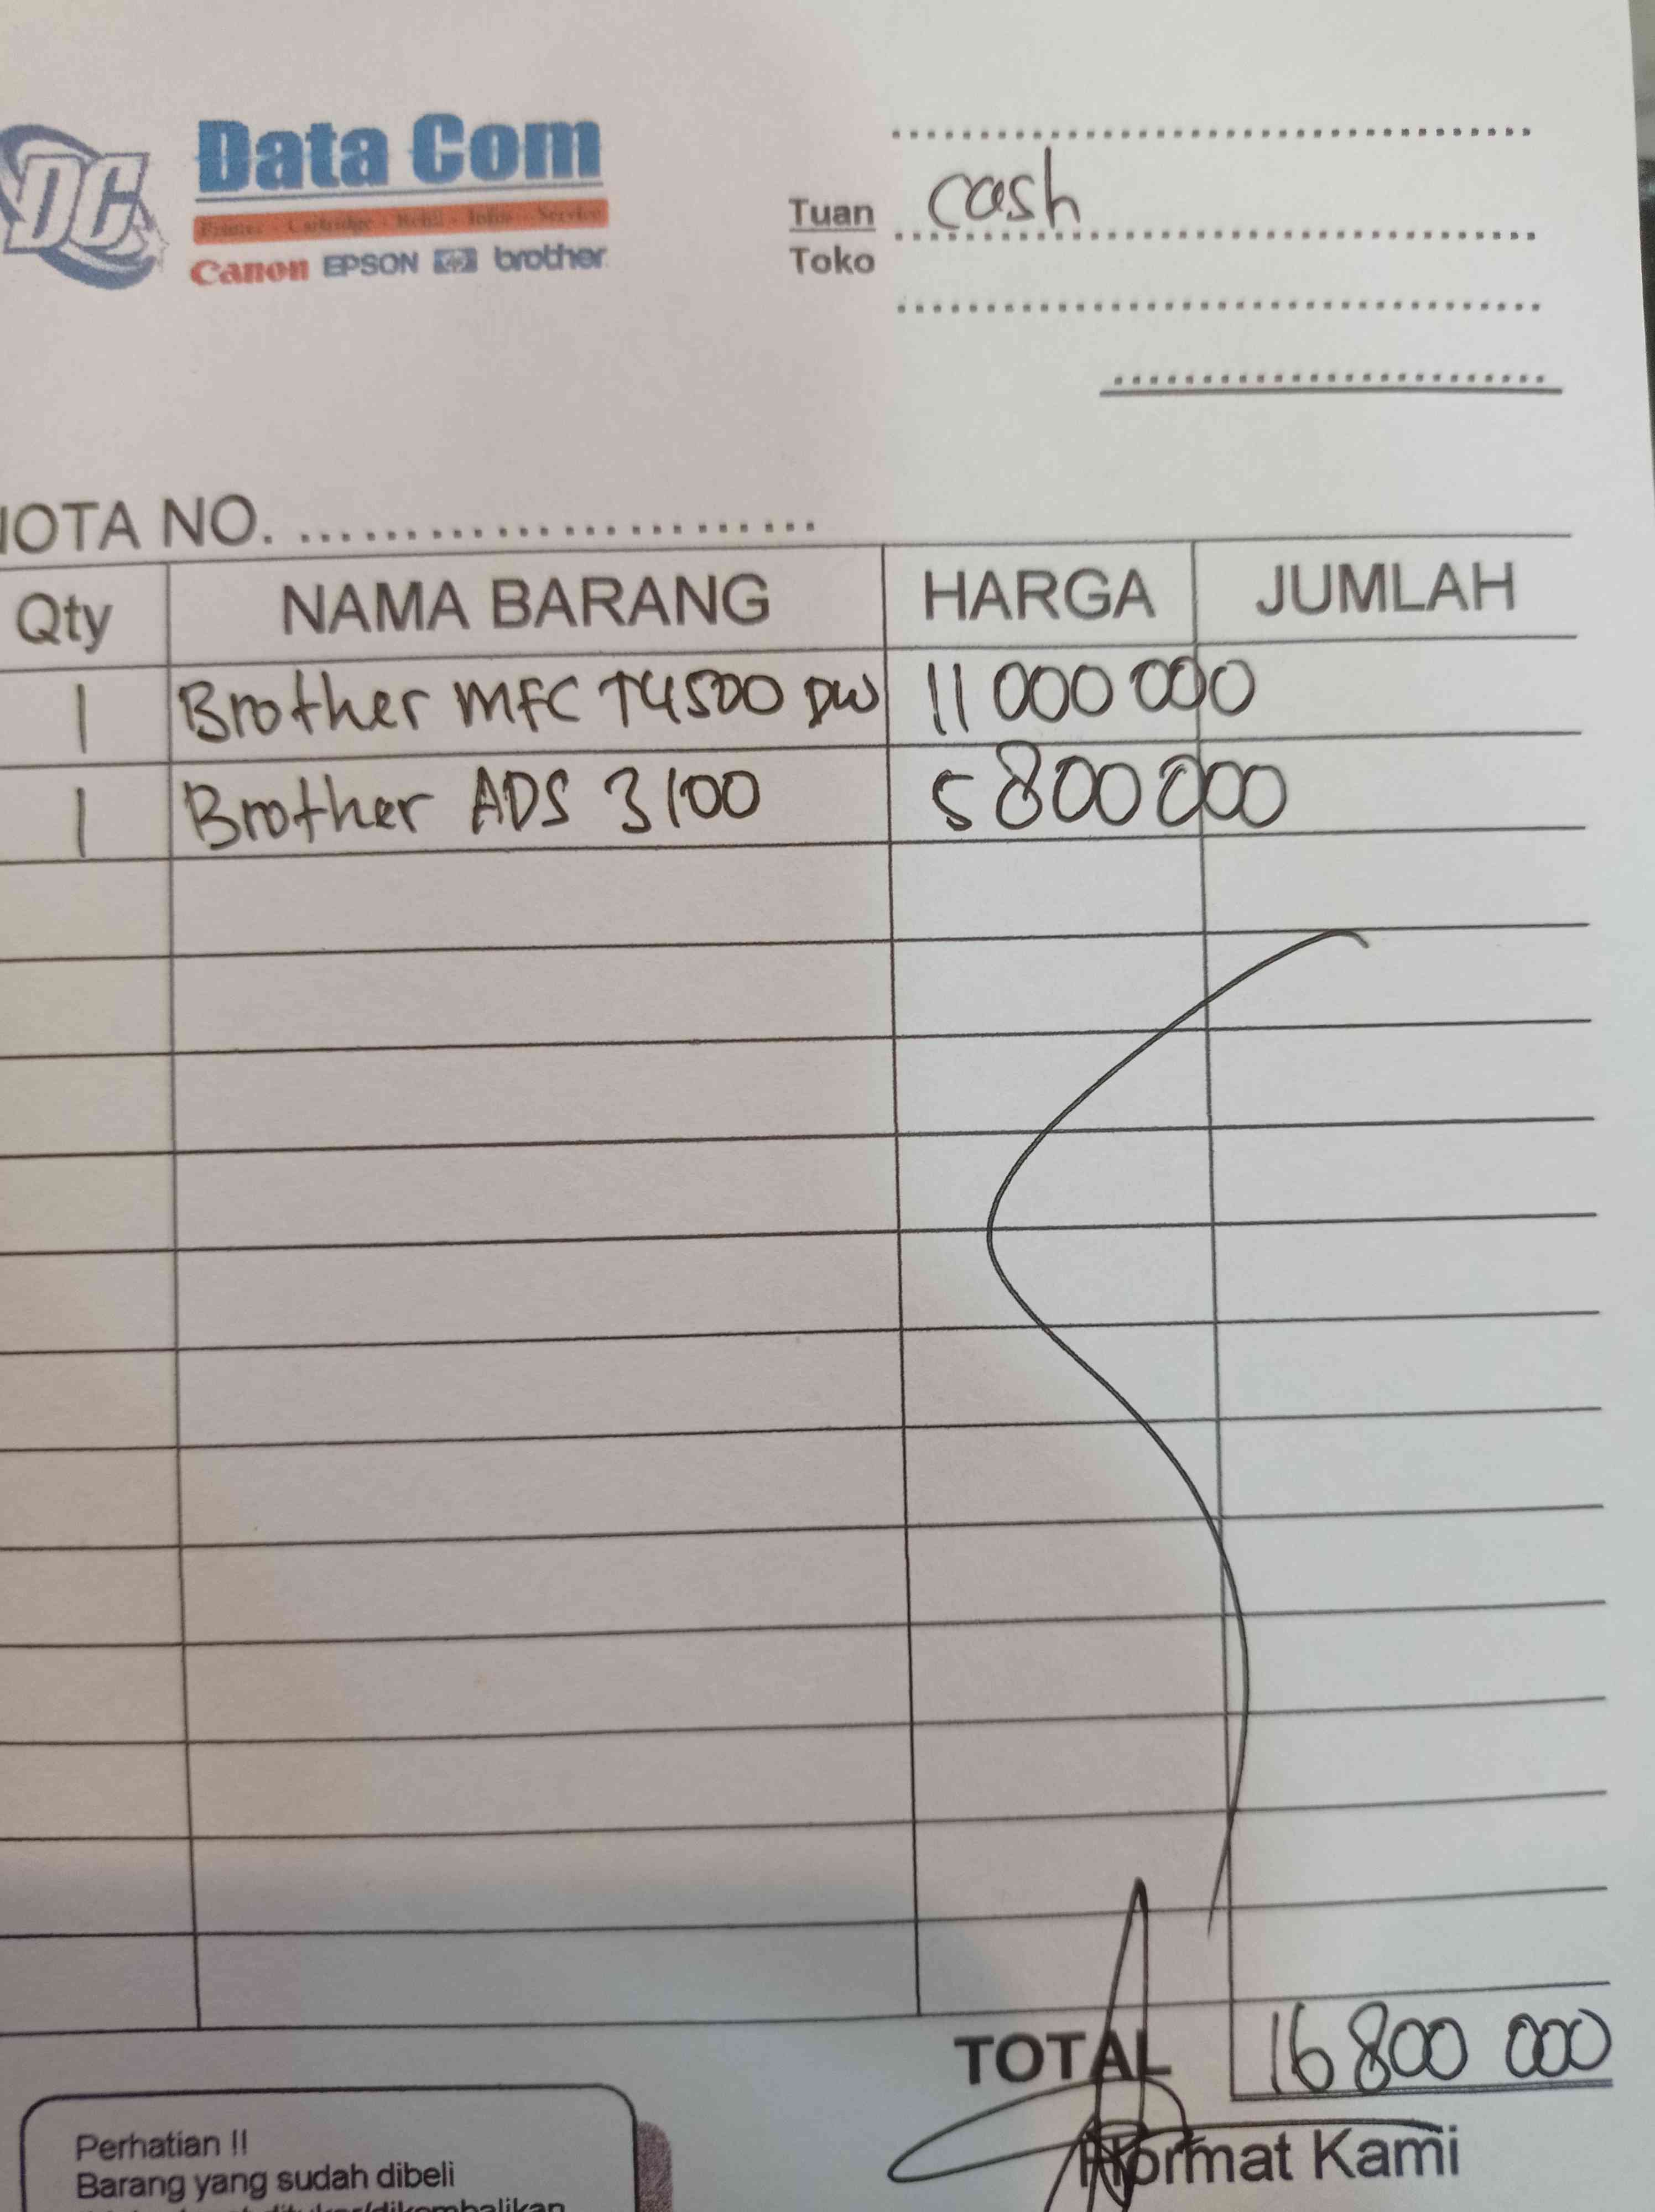 DC
Data Com
Printer - Cartridge - Refill - Infus - Service
Canon EPSON hp brother
Tuan cash
Toko
NOTA NO.
Qty NAMA BARANG HARGA JUMLAH
1 Brother MFC T4500 DW 11 000 000
1 Brother ADS 3100 5 800 000
TOTAL 16 800 000
Hormat Kami
Perhatian !!
Barang yang sudah dibeli
ditukar/dikembalikan